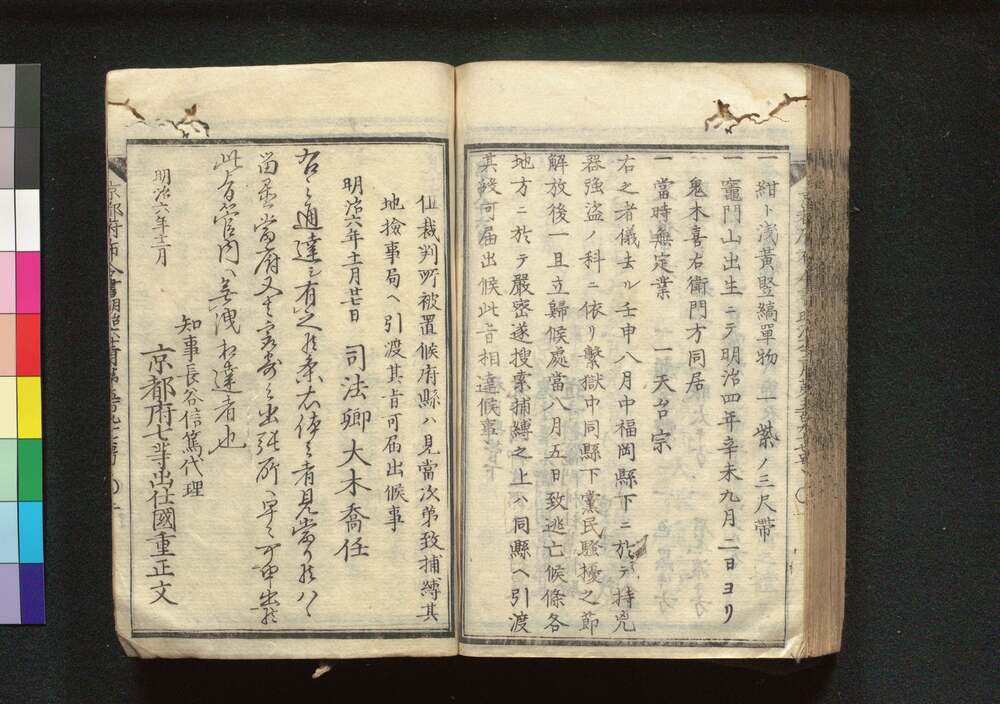 一 紺ト浅黄竪縞單物 一 紫ノ三尺帯
一 竈門山出生ニテ明治四年辛未九月二日ヨリ
鬼木喜右衛門方同居
一 當時無定業 一 天台宗
右之者儀去ル壬申八月中福岡縣下ニ於テ持兇
器強盗ノ科ニ依リ繋獄中同縣下黨民騒擾之節
解放後一旦立歸候處當八月五日致逃亡候條各
地方ニ於テ嚴密遂搜索捕縛之上ハ同縣ヘ引渡
其後可届出候此旨相達候事
但裁判所被置候府縣ハ見當次第致捕縛其
地撿事局ヘ引渡其旨可届出候事
明治六年十一月廿七日 司法卿大木喬任
右之通達シ有之候条右体之者見當リ候ハヽ
留置當府又ハ最寄之出張所ヘ早々可申出候
此旨管内ヘ無洩相達者也
明治六年十二月
知事長谷信篤代理
京都府七等出仕國重正文